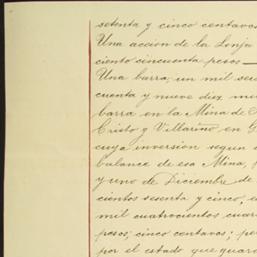 setenta y cinco centavos
Una accion de la Lonja
ciento cincuenta pesos
Una barra, un mil seis
cuenta y nueve diez mi
barra en la Mina de
Cristo y Villarino en G
cuya inversion segun
balance de esa Mina,
y uno de Diciembre de
cientos sesenta y cinco,
mil cuatrocientos cuar
pesos, cinco centavos; pe
por el estado que guar